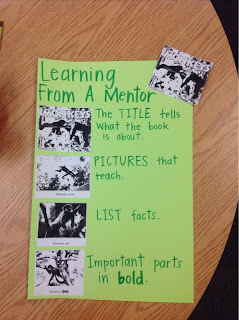 Learning
From A Mentor
The TITLE tells
what the book
is about.
PICTURES that
teach.
LIST facts.
Important parts
in bold.